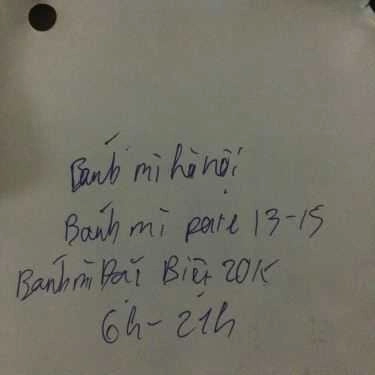 Bánh mì hà nội
Bánh mì pate 13-15
Bánh mì Đặc Biệt 20k
6h - 21h